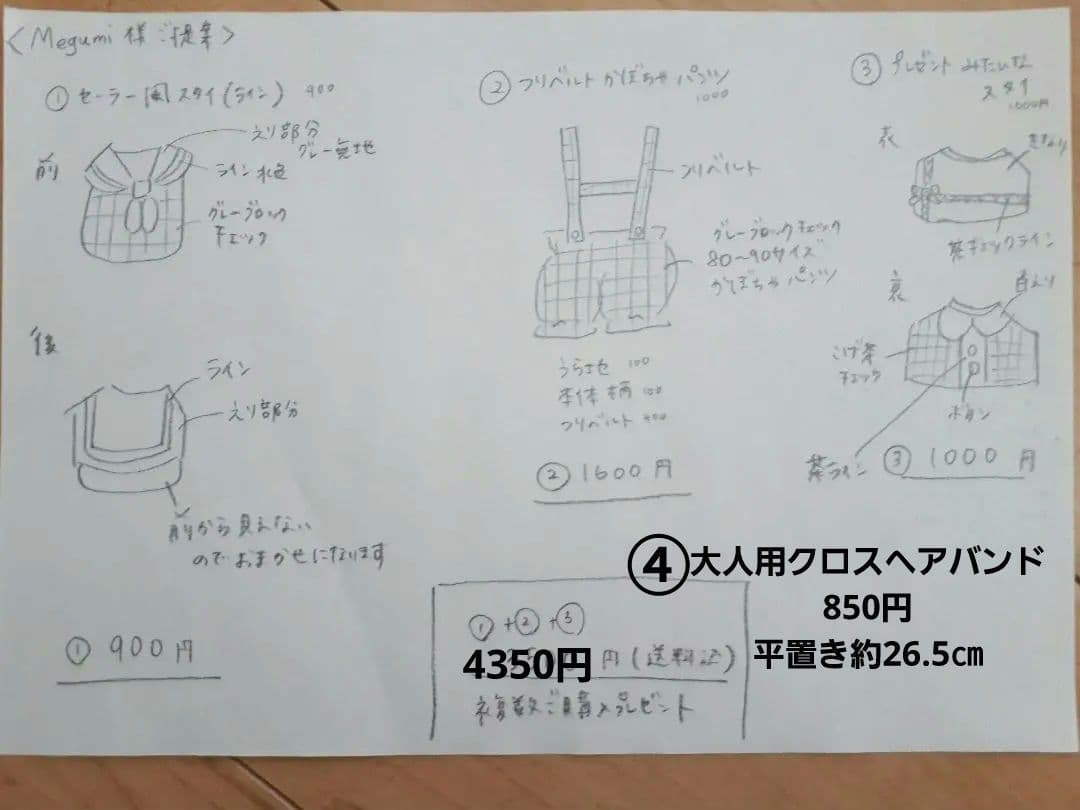 <Megumi 様 ご提案>
① セーラー風 スタイ(ライン) 900
前
えり部分
グレー無地
ライン 水色
グレーブロック
チェック
後
ライン
えり部分
前から見えない
のでおまかせになります
① 900円
② ツリベルト かぼちゃ パンツ
1000
ツリベルト
グレーブロックチェック
80~90サイズ
かぼちゃパンツ
うら地 100
本体 柄 100
ツリベルト 400
② 1600円
③ プレゼント みたいな
スタイ
1000円
表
きなり
茶チェックライン
裏
白えり
こげ茶
チェック
ボタン
茶ライン
③ 1000円
④大人用クロスヘアバンド
850円
平置き約26.5㎝
①+②+③
4350円 円(送料込)
複数ご購入プレゼント